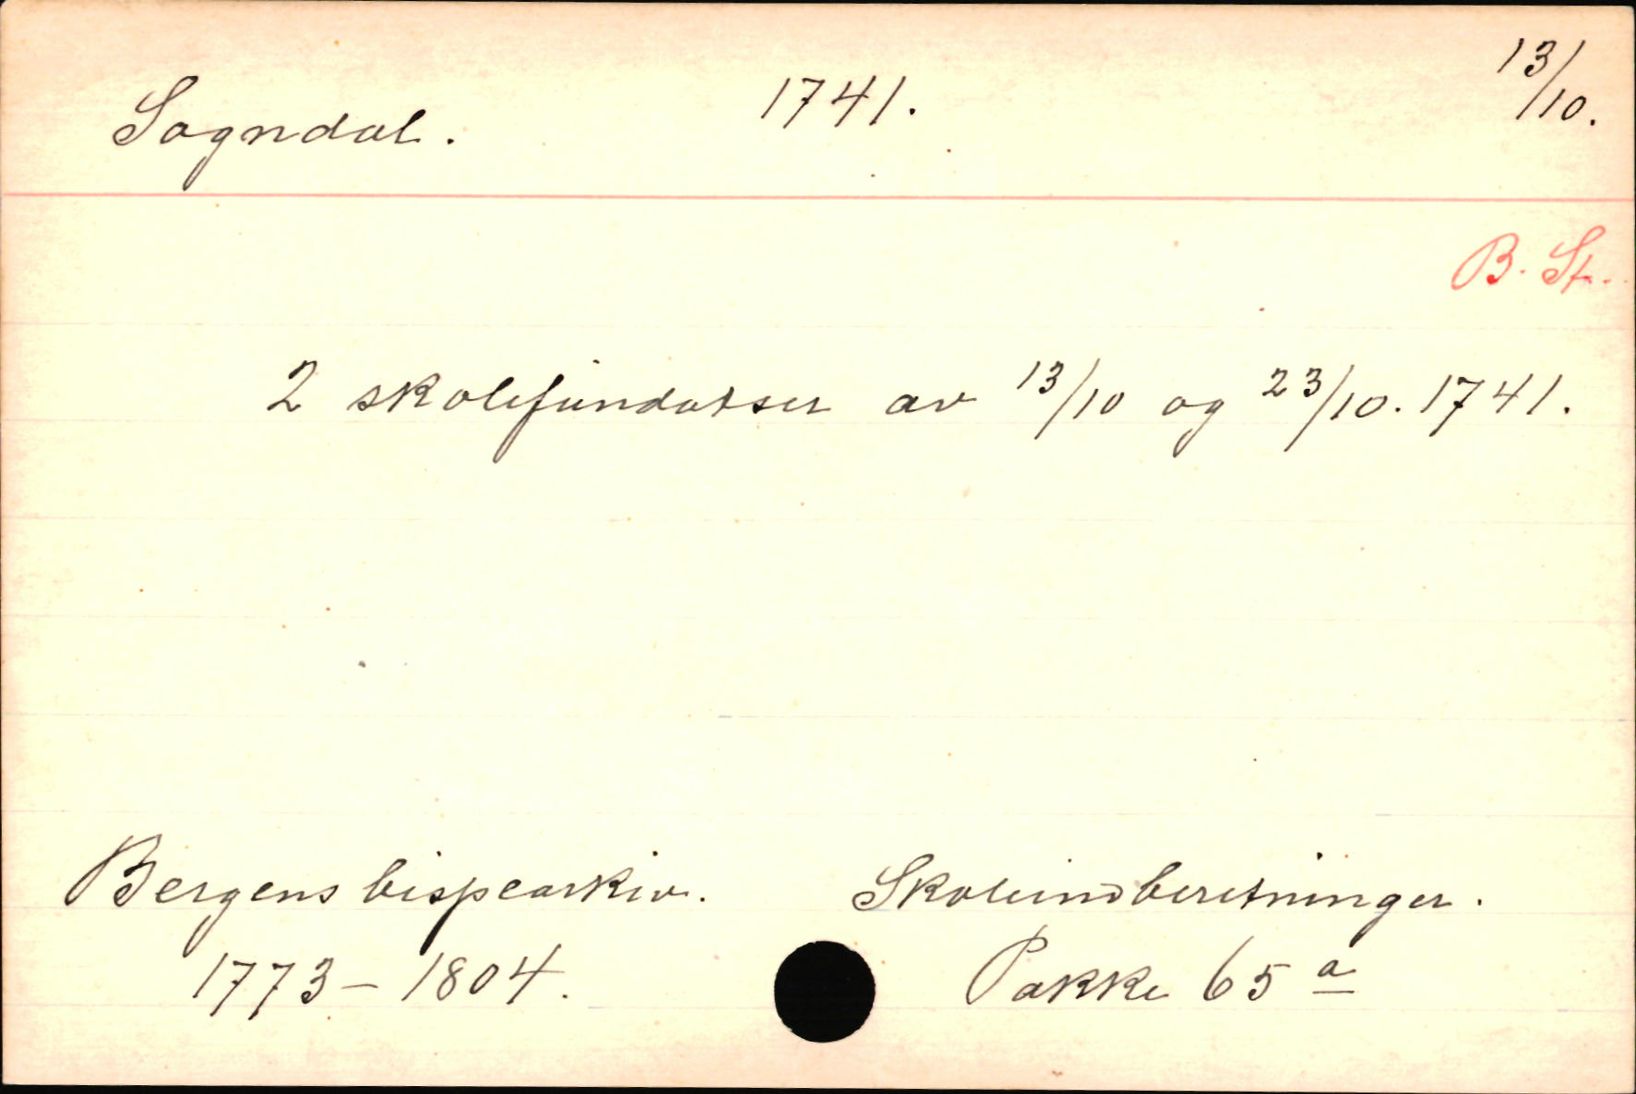 Sogndal. 1741. 13/10.
B. St.
2 skolefundatser av 13/10 og 23/10. 1741.
Bergens bispearkiv. Skoleindberetninger.
1773-1804. Pakke 65 a